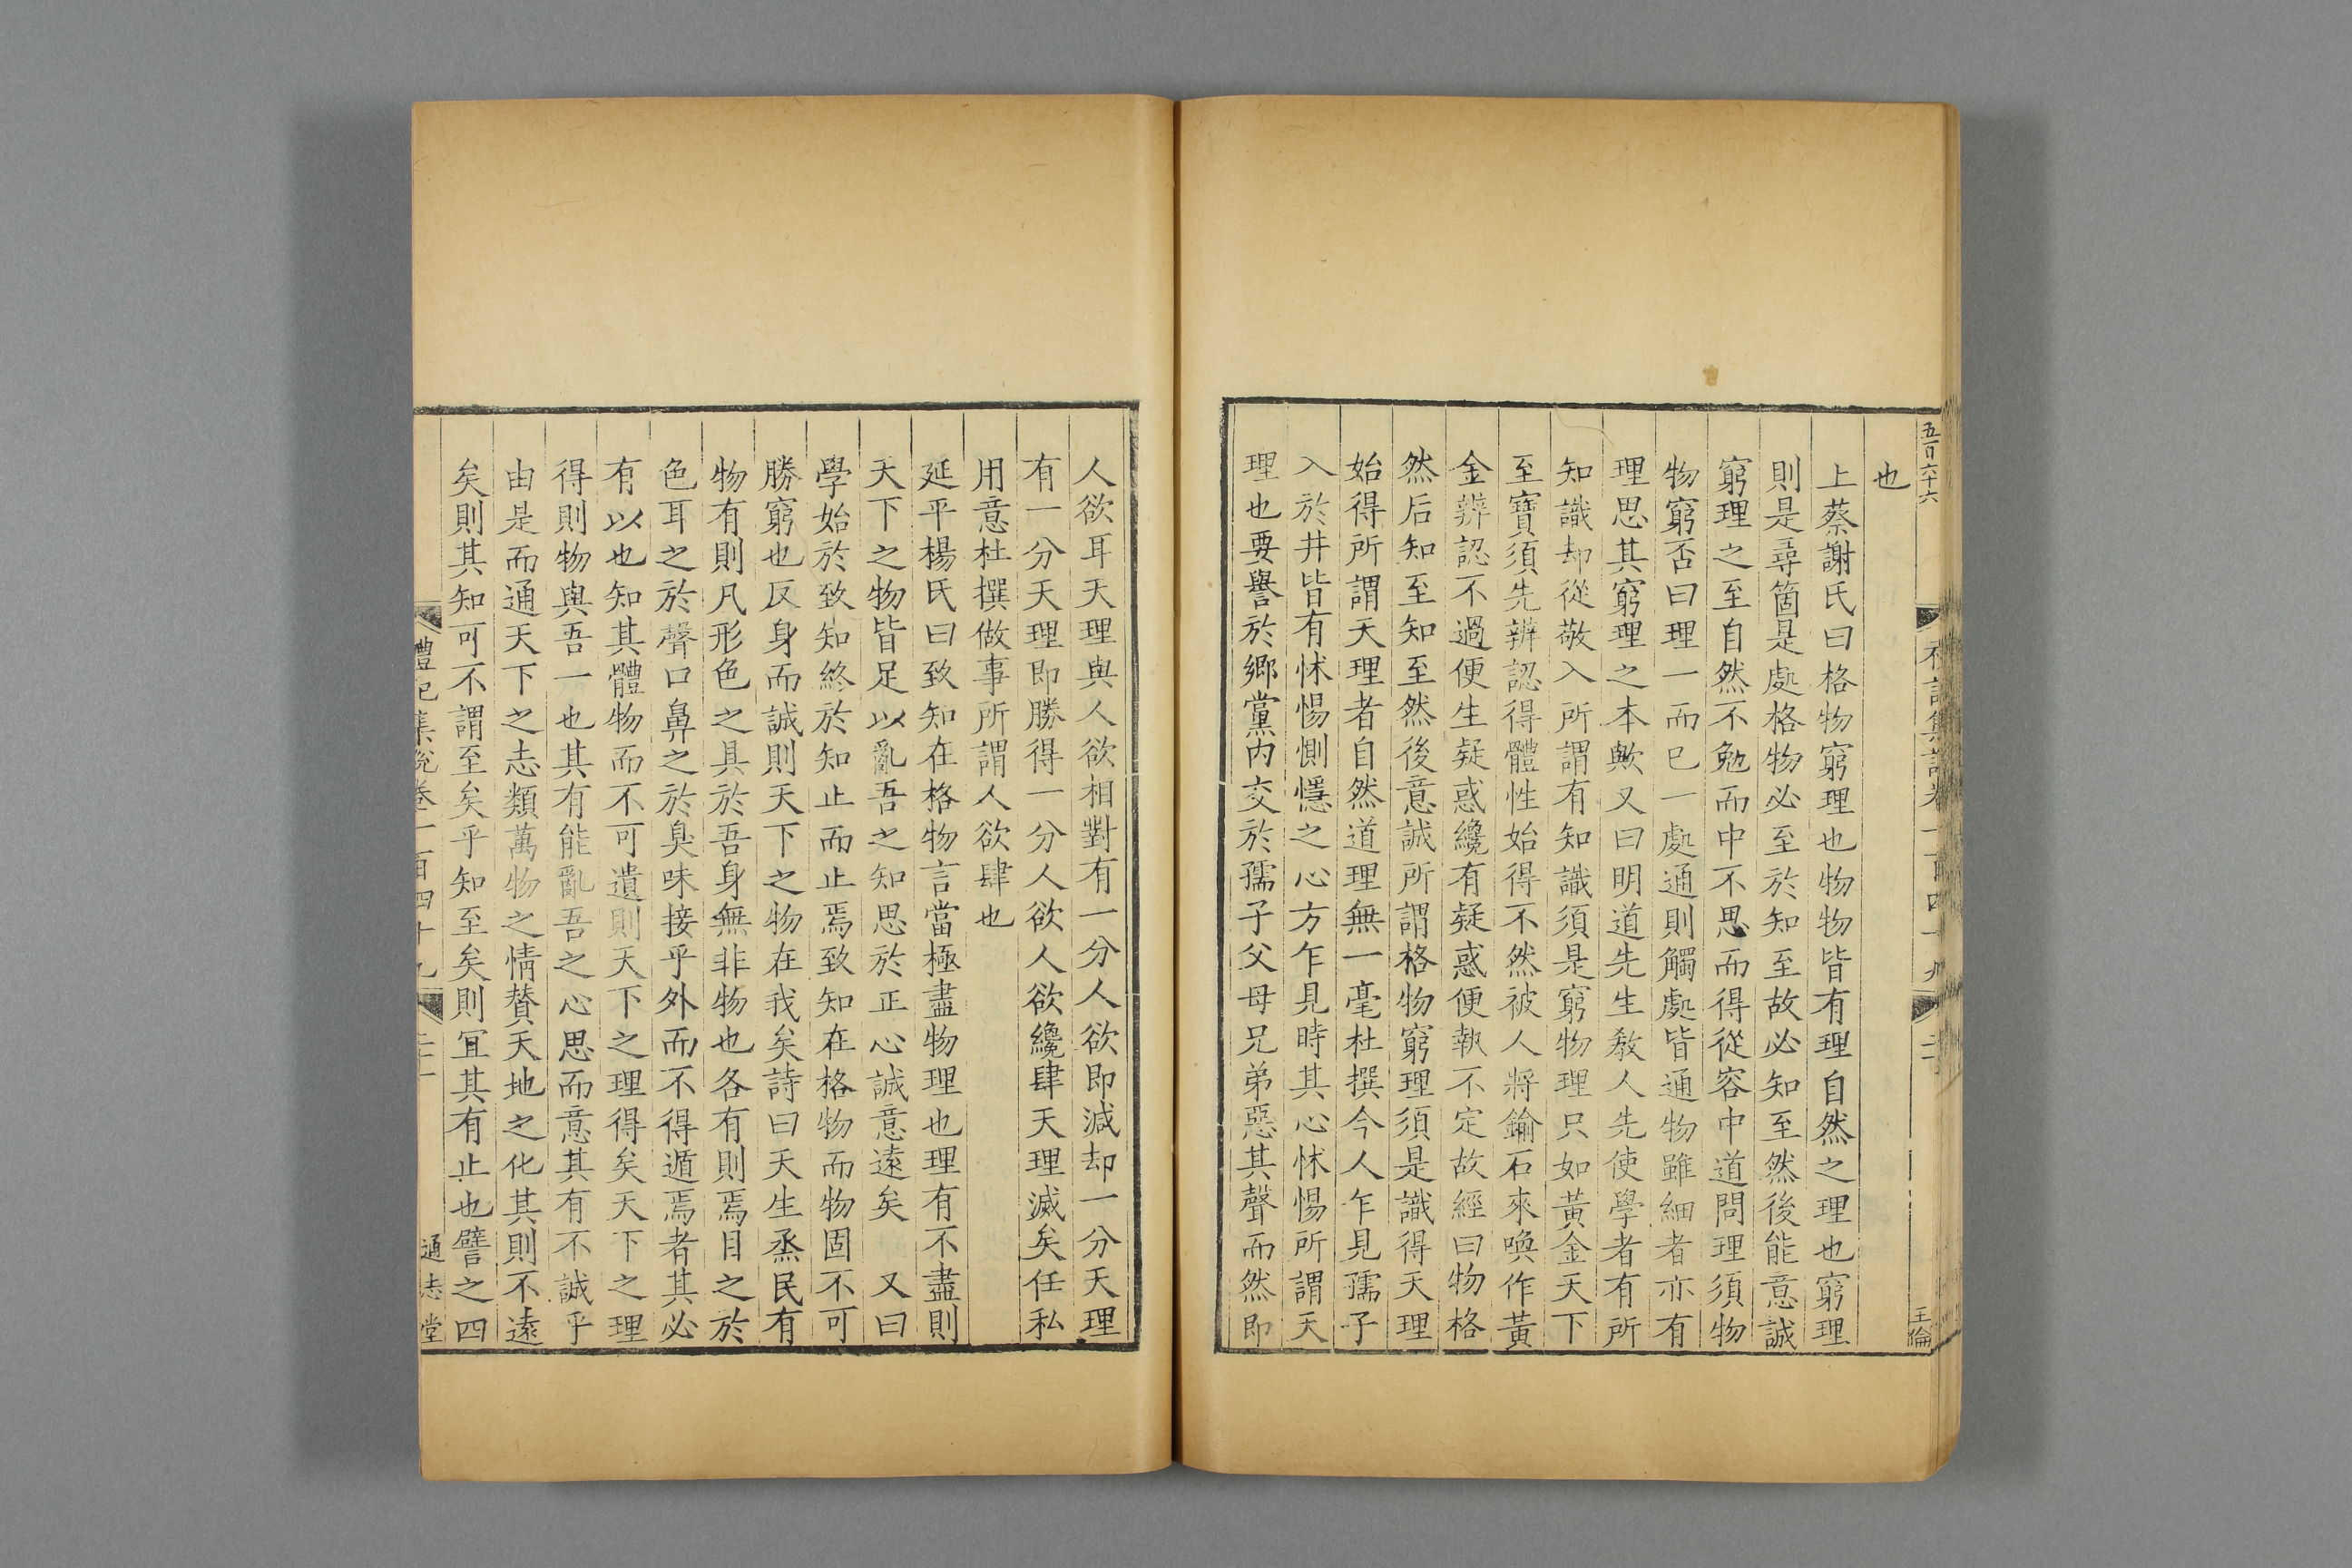 五百六十六
王倫
也
上蔡謝氏曰格物窮理也物物皆有理自然之理也窮理
則是尋箇是處格物必至於知至故必知至然後能意誠
窮理之至自然不勉而中不思而得從容中道問理須物
物窮否曰理一而已一處通則觸處皆通物雖細者亦有
理思其窮理之本歟又曰明道先生教人先使學者有所
知識却從敬入所謂有知識須是窮物理只如黃金天下
至寶須先辨認得體性始得不然被人將鍮石來喚作黃
金辨認不過便生疑惑纔有疑惑便執不定故經曰物格
然后知至知至然後意誠所謂格物窮理須是識得天理
始得所謂天理者自然道理無一毫杜撰今人乍見孺子
入於井皆有怵惕惻隱之心方乍見時其心怵惕所謂天
理也要譽於鄉黨内交於孺子父母兄弟惡其聲而然即
人欲耳天理與人欲相對有一分人欲即減却一分天理
有一分天理即勝得一分人欲人欲纔肆天理滅矣任私
用意杜撰做事所謂人欲肆也
延平楊氏曰致知在格物言當極盡物理也理有不盡則
天下之物皆足以亂吾之知思於正心誠意遠矣　又曰
學始於致知終於知止而止焉致知在格物而物固不可
勝窮也反身而誠則天下之物在我矣詩曰天生烝民有
物有則凡形色之具於吾身無非物也各有則焉目之於
色耳之於聲口鼻之於臭味接乎外而不得遁焉者其必
有以也知其體物而不可遺則天下之理得矣天下之理
得則物與吾一也其有能亂吾之心思而意其有不誠乎
由是而通天下之志類萬物之情賛天地之化其則不遠
矣則其知可不謂至矣乎知至矣則宜其有止也譬之四
禮記集說卷一百四十九
通志堂